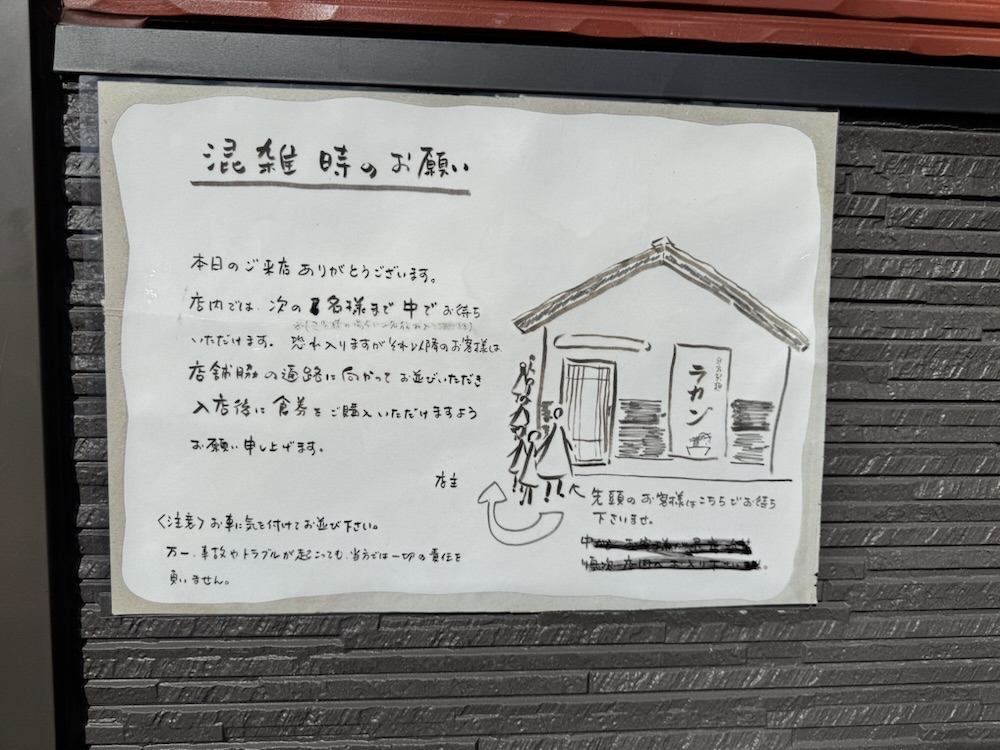 混雑時のお願い
本日のご来店ありがとうございます。
店内では、次の1名様まで中でお待ち
いただけます。恐れ入りますがそれ以降のお客様は
店舗脇の通路に向かってお並びいただき
入店後に食券をご購入いただけますよう
お願い申し上げます。
店主
〈注意〉お車に気を付けてお並び下さい。
万一、事故やトラブルが起こっても、当方では一切の責任を
負いません。
ラカン
先頭のお客様はこちらでお待ち
下さいませ。